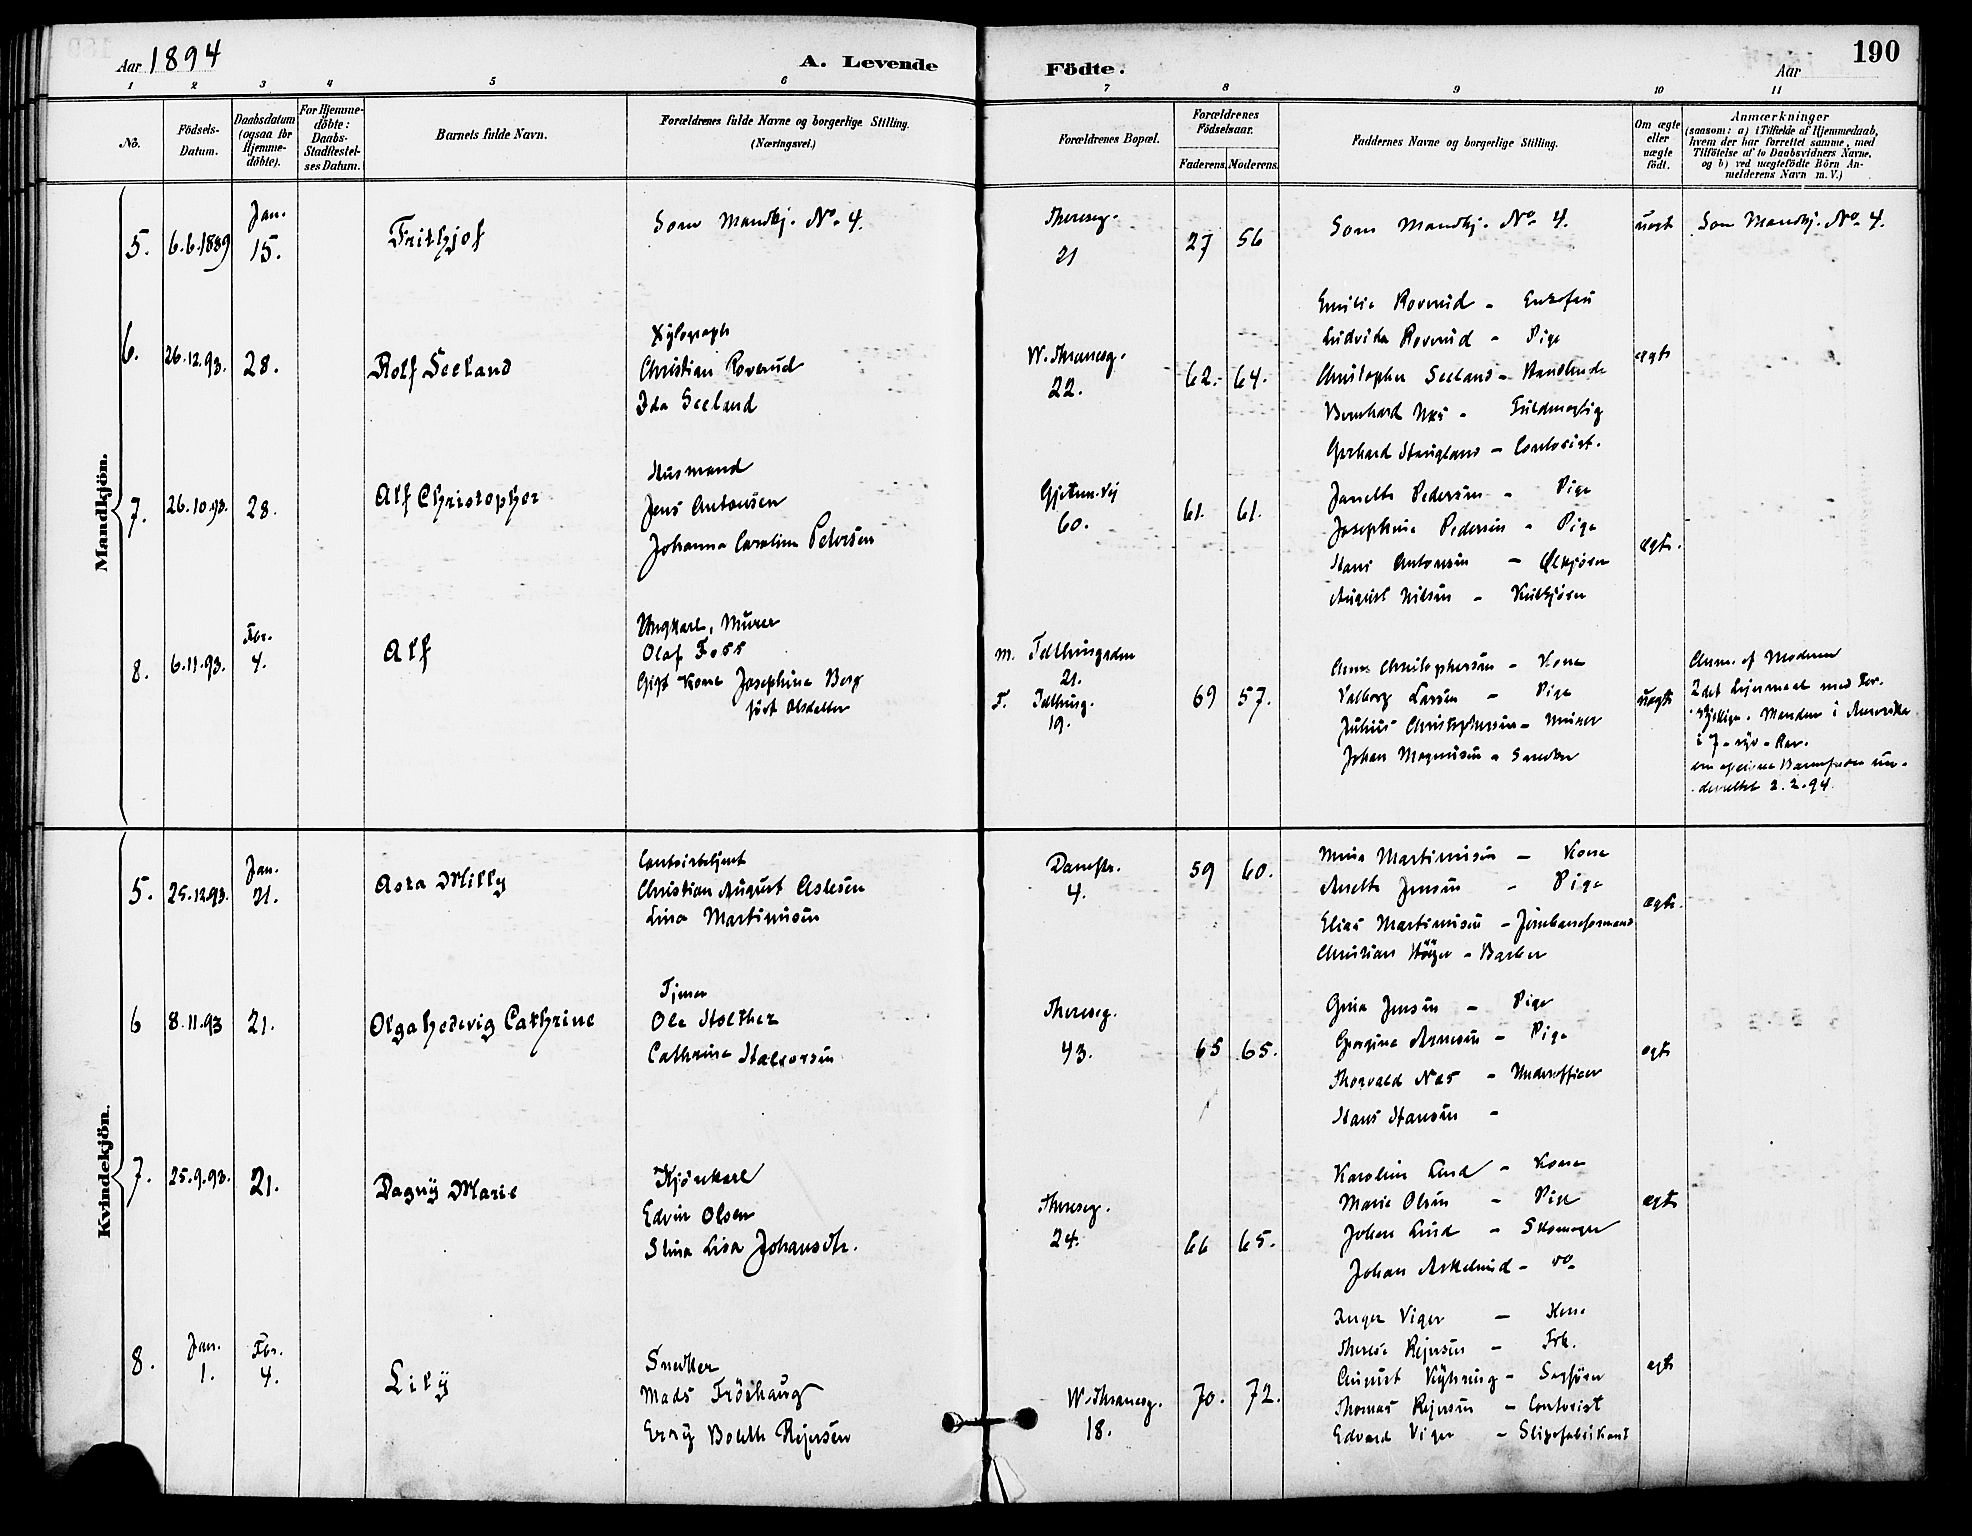 Aar 1894
A. Levende Födte.
Aar
190
1 2 3 4 5 6 7 8 9 10 11
No.
Födsels-Datum.
Daabsdatum (ogsaa for Hjemme-döbte).
For Hjemme-döbte: Daabs-Stadfestel-ses Datum.
Barnets fulde Navn.
Forældrenes fulde Navne og borgerlige Stilling. (Næringsvei.)
Forældrenes Bopæl.
Forældrenes Födselsaar.
Faderens. Moderens.
Faddernes Navne og borgerlige Stilling.
Om ægte eller uægte födt.
Anmærkninger
(saasom: a) i Tilfælde af Hjemmedaab, hvem der har forrettet samme, med Tilföielse af to Daabsvidners Navne, og b) ved uægtefödte Börn An-melderens Navn m. V.)
Mandkjön.
5. 6.6.1889 Jan. 15. Frithjof
Som Mandkj. No. 4.
Thereseg. 21
27 56
Som Mandkj. No. 4.
uægt
Som Mandkj. No. 4.
6. 26.12.93. 28. Rolf Seeland
Xylograph
Christian Roverud
Ida Seeland
W. Thranesg. 22.
62. 64.
Emilie Roverud - Enkefru
Ludvika Roverud - Pige
Christopher Seeland - Handlende
Bernhard Næs - Fuldmægtig
Gerhard Haugland - Contorist.
ægte
7. 26.10.93. 28. Alf Christopher
Husmand
Jens Antonsen
Johanna Caroline Petersen
60.
61. 61.
Janette Pedersen - Pige
Josephine Pedersen - Pige
Hans Antonsen - Ølkjører
August Nilsen - Kulkjører
ægte.
8. 6.11.93. Febr. 4. Alf
Ungkarl, Murer
Olaf Foss
Gift Kone Josephine Berg
født Olsdatter
M. 21.
F. 19.
69 57.
Anna Christophersen - Kone
Valborg Larsen - Pige
Julius Christophersen - Murer
Johan Magnusen - Snedker
uægte
Anm. af Moderen
2det Leiermaal med For-
skjellige. Manden i Amerika
i 7 - syv - Aar.
Barnefader un-
derrettet 2.2.94.
Kvindekjön.
5. 25.12.93. Jan. 21. Asta Milly
Contoirbetjent
Christian August Aslesen
Lina Martinusen
4.
59 60.
Mina Martinusen - Kone
Anette Jensen - Pige
Elias Martinusen - Jernbaneformand
Christian - Barber
ægte.
6 8.11.93 21. Olga Hedevig Cathrine
Tjener
Ole Holther
Cathrine Halvorsen
Thereseg. 43.
65 65.
Gina Jensen - Pige
Georgine Arnesen - Pige
Thorvald Næs - Underofficer
Hans Hansen -
ægte
7. 25.9.93. 21. Dagny Marie
Kjørekarl
Edvin Olsen
Stina Lisa Johansdtr.
Thereseg. 24.
66 65.
Karoline Lund - Kone
Marie Olsen - Pige
Johan Lund - Skomager
Johan Askelund - do.
ægte
8. Jan. 1. Febr. 4. Lily
Snedker
Mads Fröshaug
Bolette Rejersen
W. Thranesg. 18.
70. 72.
Inger Viger - Kone
Therese Rejersen - Frk.
August - Sagfører
Thomas Rejersen - Contorist
Edvard Viger - Slipsfabrikant
ægte